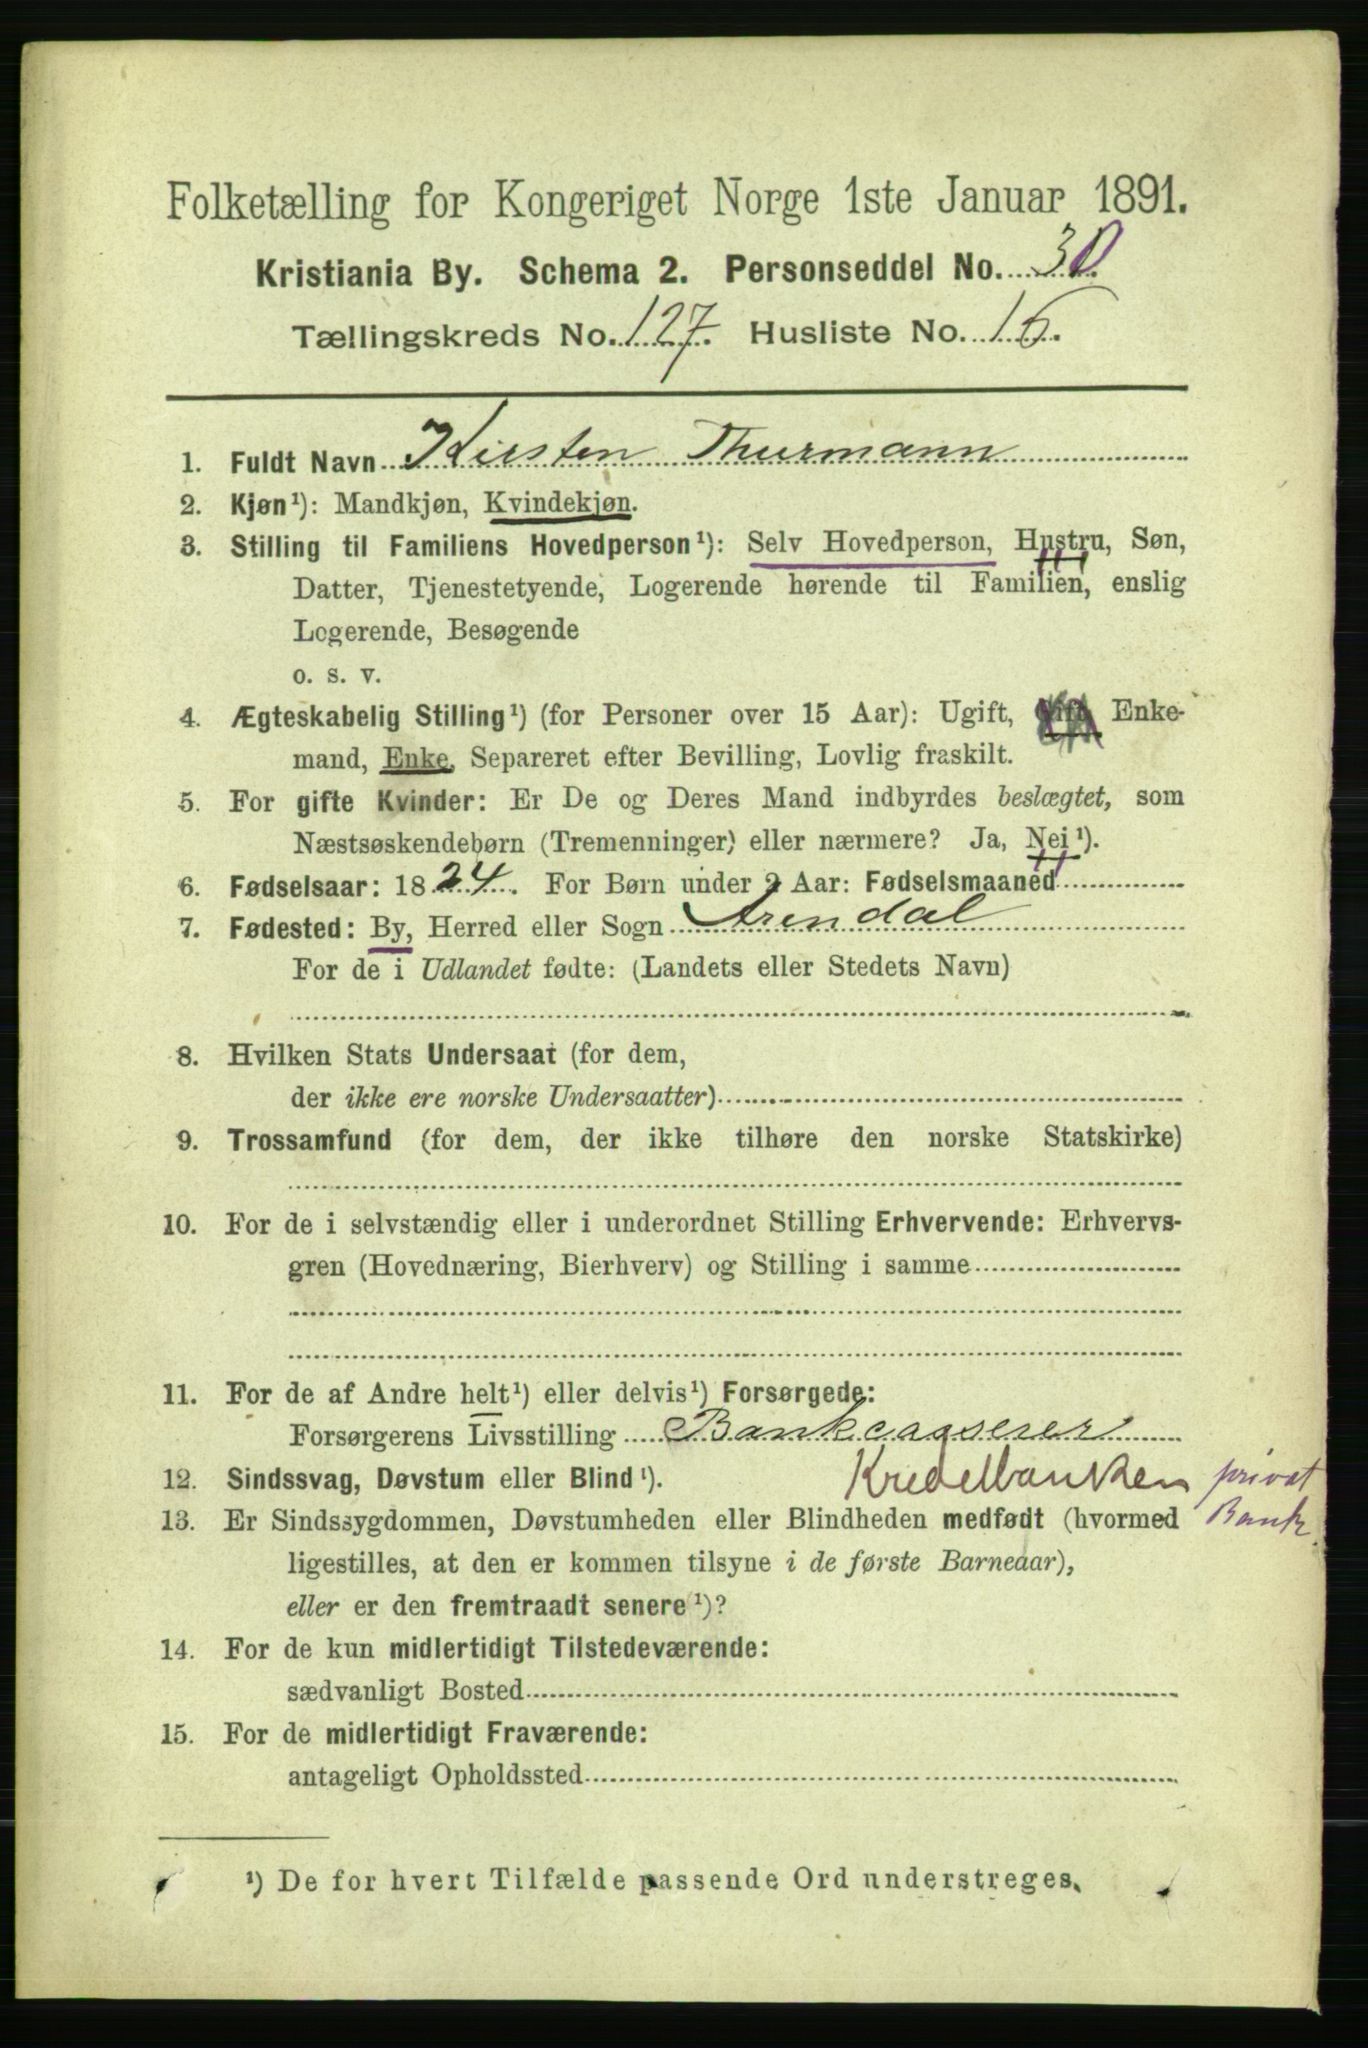 Folketælling for Kongeriget Norge 1ste Januar 1891.
Kristiania By. Schema 2. Personseddel No. 30.
Tællingskreds No. 127. Husliste No. 16.
1. Fuldt Navn Kirsten Thurmann
2. Kjøn¹): Mandkjøn, Kvindekjøn.
3. Stilling til Familiens Hovedperson¹): Selv Hovedperson, Hustru, Søn,
Datter, Tjenestetyende, Logerende hørende til Familien, enslig
Logerende, Besøgende
o. s. v.
4. Ægteskabelig Stilling¹) (for Personer over 15 Aar): Ugift, Gift, Enke-
mand, Enke, Separeret efter Bevilling, Lovlig fraskilt.
5. For gifte Kvinder: Er De og Deres Mand indbyrdes beslægtet, som
Næstsøskendebørn (Tremenninger) eller nærmere? Ja, Nei¹).
6. Fødselsaar: 1824. For Børn under 2 Aar: Fødselsmaaned
7. Fødested: By, Herred eller Sogn Arendal
For de i Udlandet fødte: (Landets eller Stedets Navn)
8. Hvilken Stats Undersaat (for dem,
der ikke ere norske Undersaatter)
9. Trossamfund (for dem, der ikke tilhøre den norske Statskirke)
10. For de i selvstændig eller i underordnet Stilling Erhvervende: Erhvervs-
gren (Hovednæring, Bierhverv) og Stilling i samme
11. For de af Andre helt¹) eller delvis¹) Forsørgede:
Forsørgerens Livsstilling Bankcasserer
12. Sindssvag, Døvstum eller Blind¹). Kreditbanken privat
13. Er Sindssygdommen, Døvstumheden eller Blindheden medfødt (hvormed Bank
ligestilles, at den er kommen tilsyne i de første Barneaar),
eller er den fremtraadt senere¹)?
14. For de kun midlertidigt Tilstedeværende:
sædvanligt Bosted
15. For de midlertidigt Fraværende:
antageligt Opholdssted
¹) De for hvert Tilfælde passende Ord understreges.